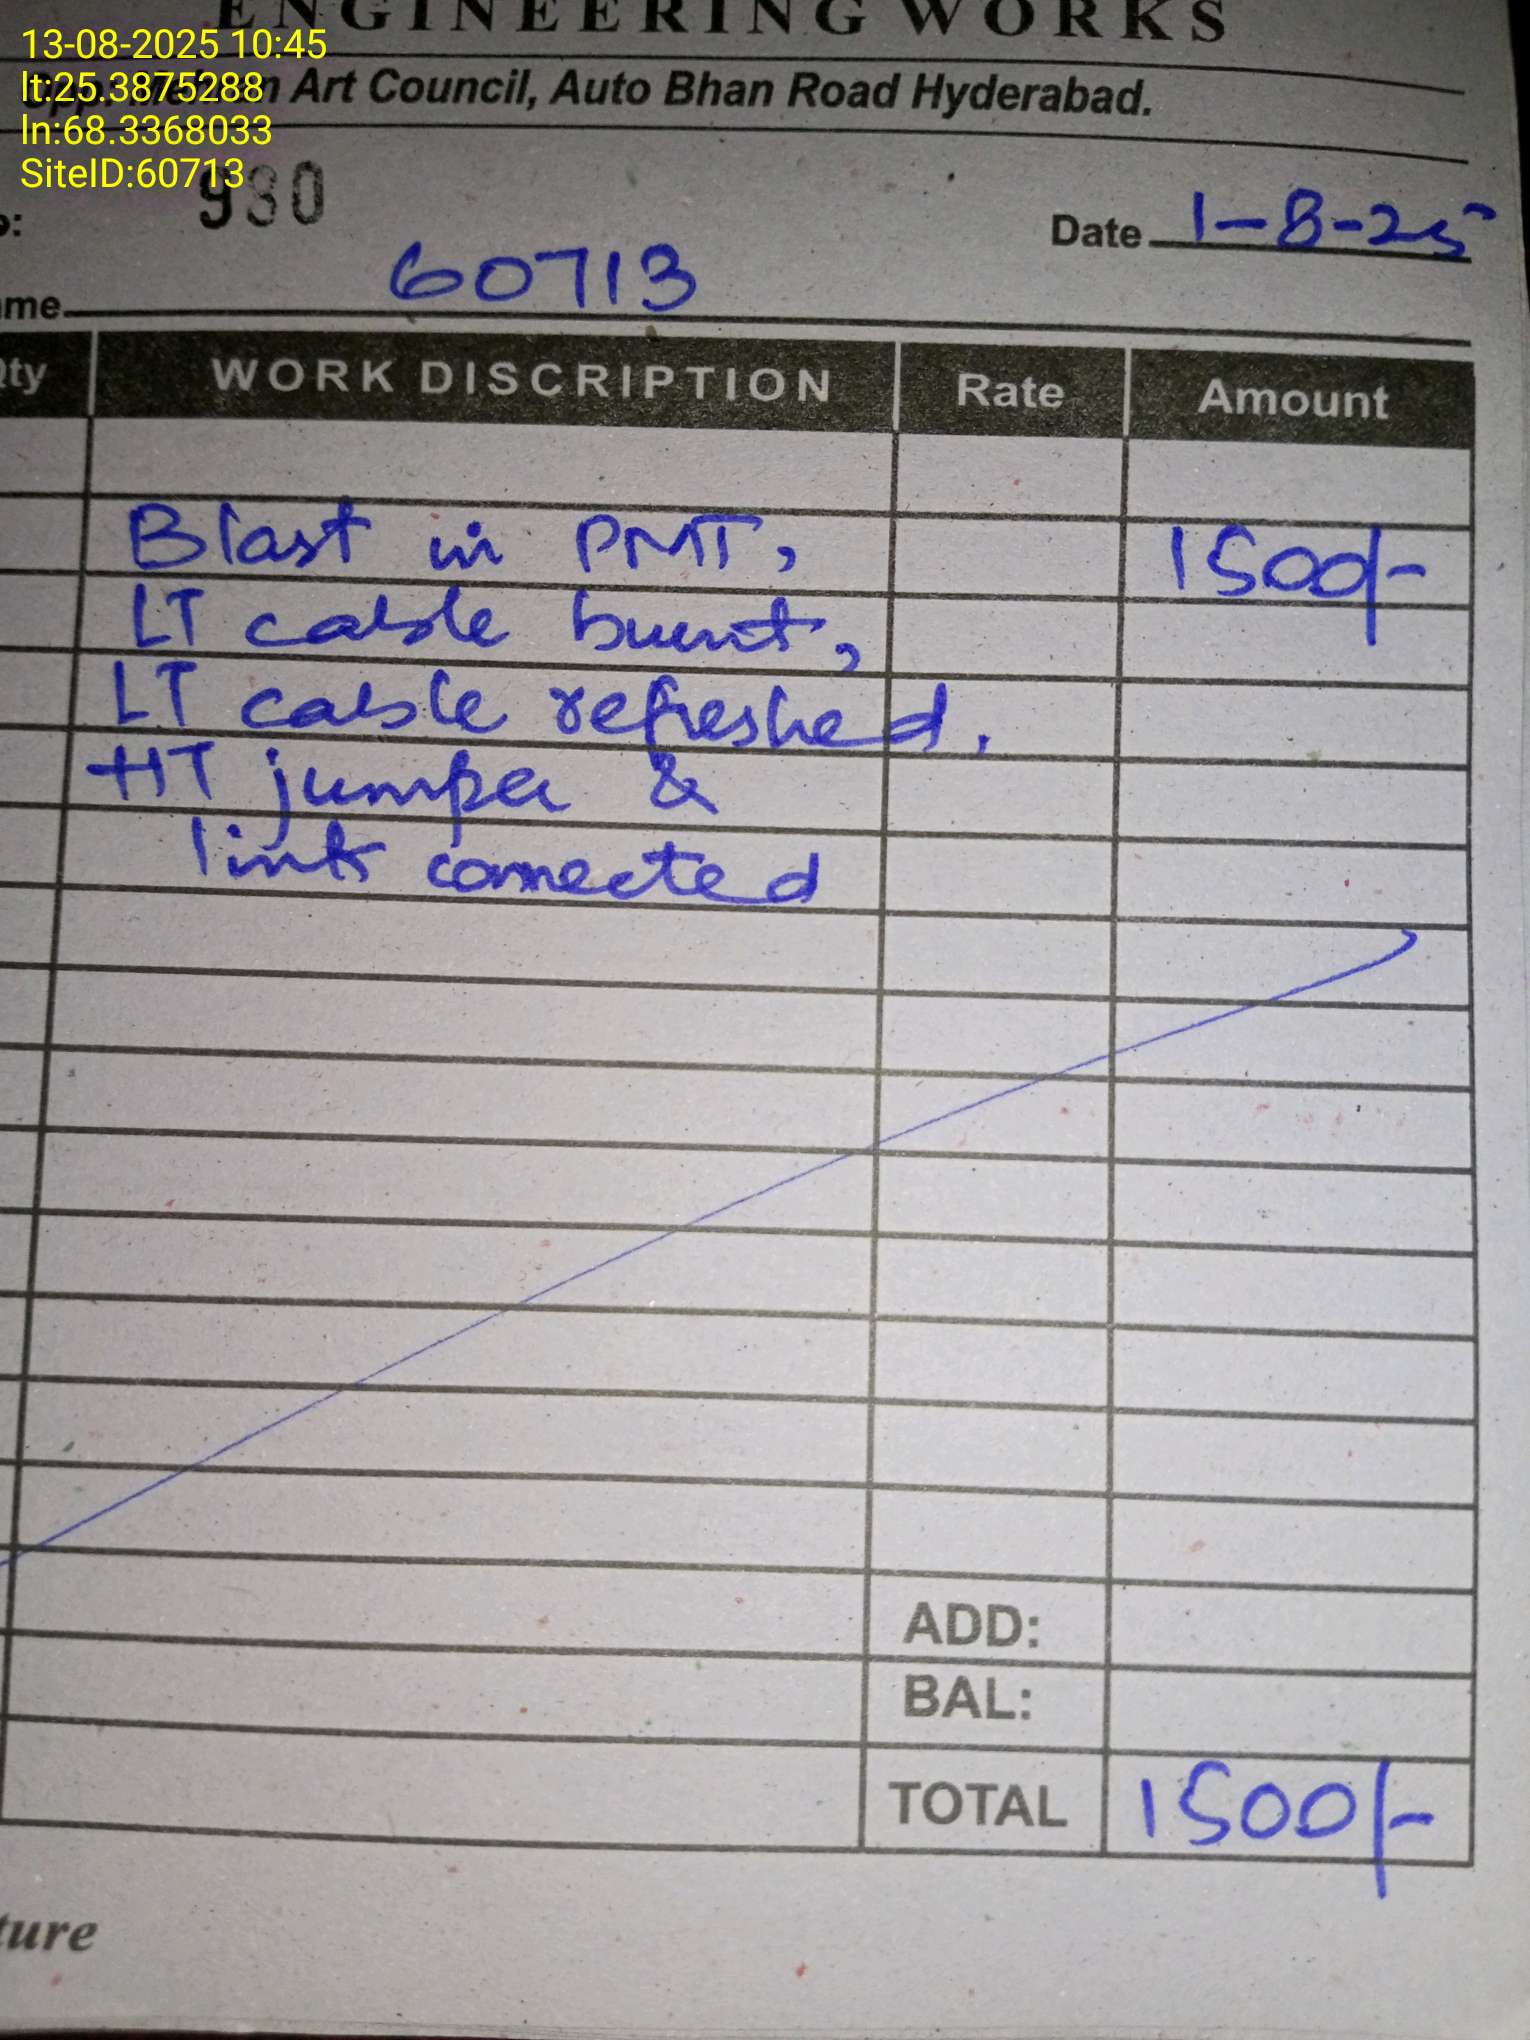 ENGINEERING WORKS
13-08-2025 10:45
lt:25.3875288
ln:68.3368033
SiteID:60713
Art Council, Auto Bhan Road Hyderabad.
930
Date 1-8-25
60713
WORK DISCRIPTION Rate Amount
Blast in PMT, 1500/-
LT cable burnt,
LT cable refreshed.
HT jumper &
link connected
ADD:
BAL:
TOTAL 1500/-